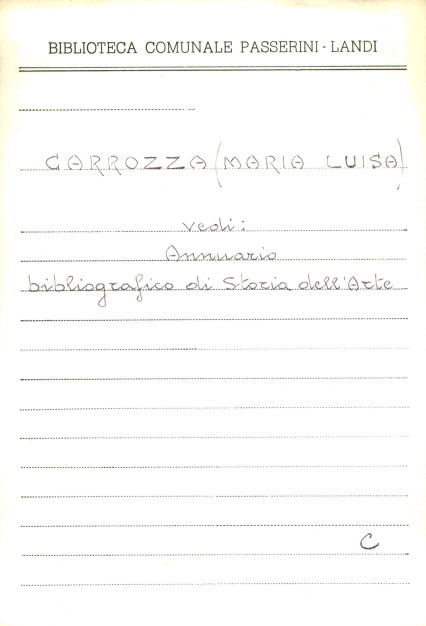 BIBLIOTECA COMUNALE PASSERINI - LANDI
GARROZZA (MARIA LUISA)
vedi:
Annuario
bibliografico di Storia dell'Arte
C